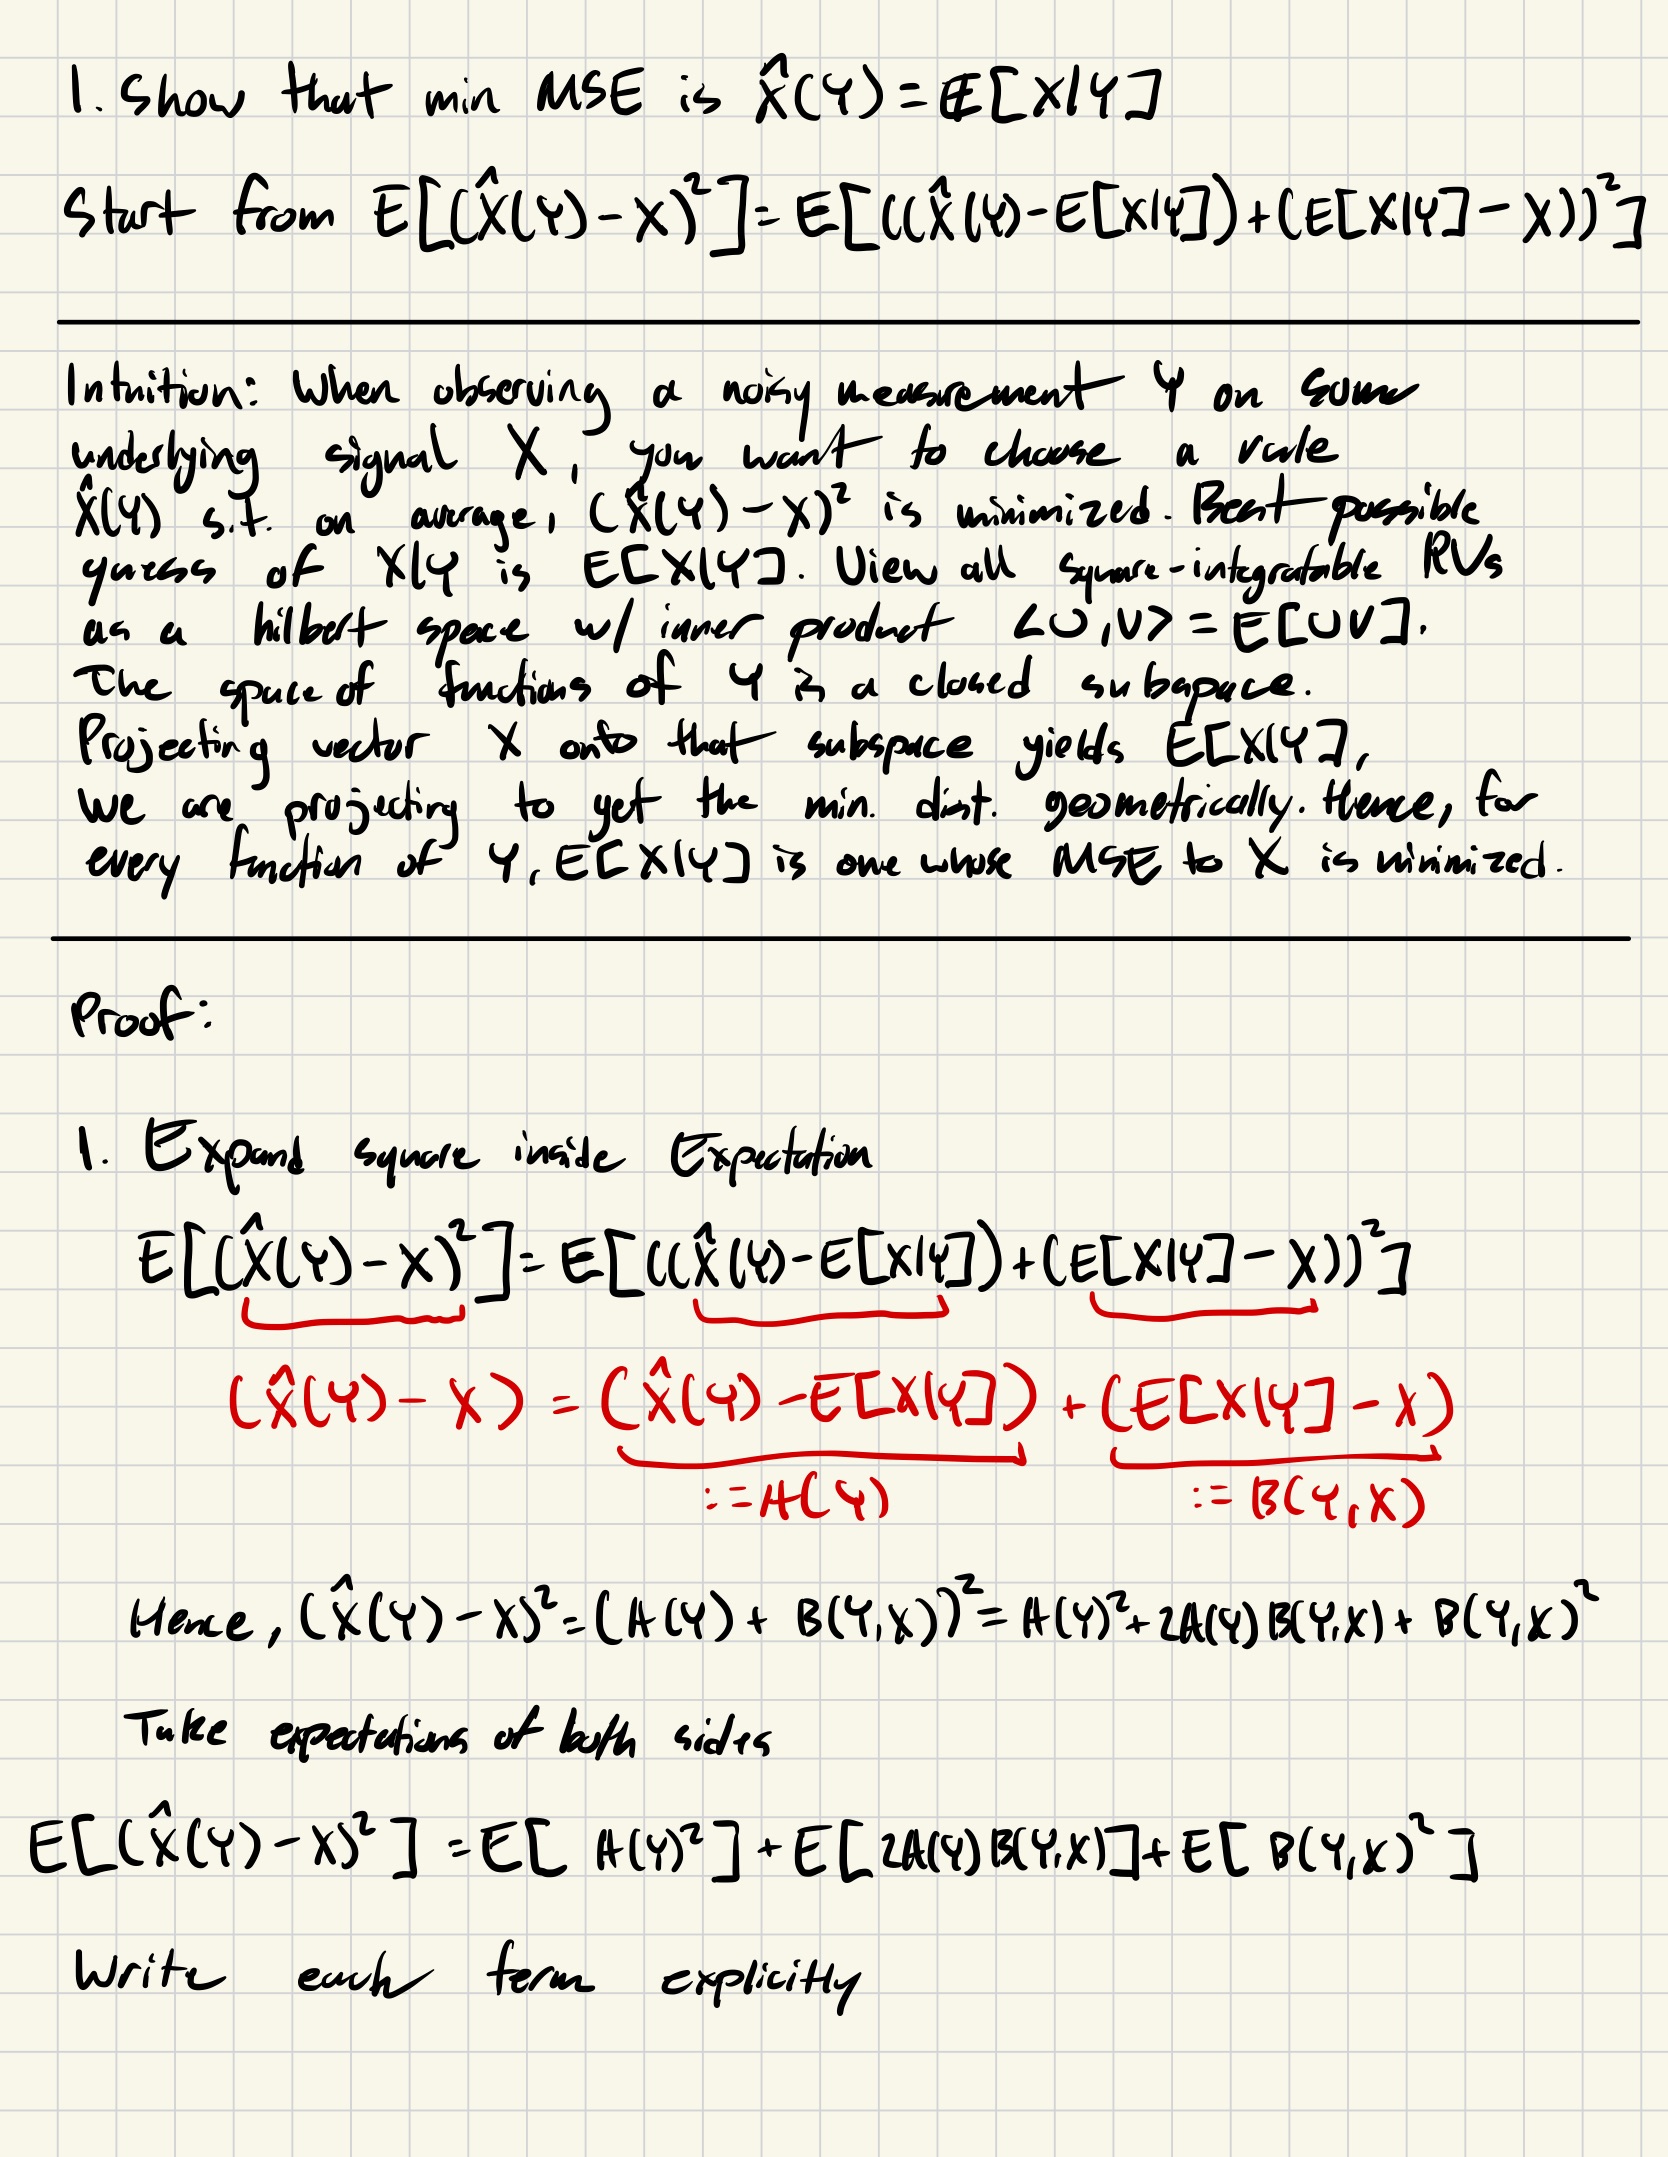 1. Show that min MSE is X̂(Y) = E[X|Y]
Start from E[(X̂(Y) - X)²] = E[((X̂(Y) - E[X|Y]) + (E[X|Y] - X))²]
Intuition: When observing a noisy measurement Y on some
underlying signal X, you want to choose a rule
X̂(Y) s.t. on average, (X̂(Y) - X)² is minimized. Best possible
guess of X|Y is E[X|Y]. View all square-integratable RVs
as a hilbert space w/ inner product <U,V> = E[UV].
The space of functions of Y is a closed subspace.
Projecting vector X onto that subspace yields E[X|Y],
We are projecting to get the min. dist. geometrically. Hence, for
every function of Y, E[X|Y] is one whose MSE to X is minimized.
Proof:
1. Expand square inside Expectation
E[(X̂(Y) - X)²] = E[((X̂(Y) - E[X|Y]) + (E[X|Y] - X))²]
(X̂(Y) - X) = (X̂(Y) - E[X|Y]) + (E[X|Y] - X)
:= A(Y) := B(Y,X)
Hence, (X̂(Y) - X)² = (A(Y) + B(Y,X))² = A(Y)² + 2A(Y)B(Y,X) + B(Y,X)²
Take expectations of both sides
E[(X̂(Y) - X)²] = E[A(Y)²] + E[2A(Y)B(Y,X)] + E[B(Y,X)²]
Write each term explicitly